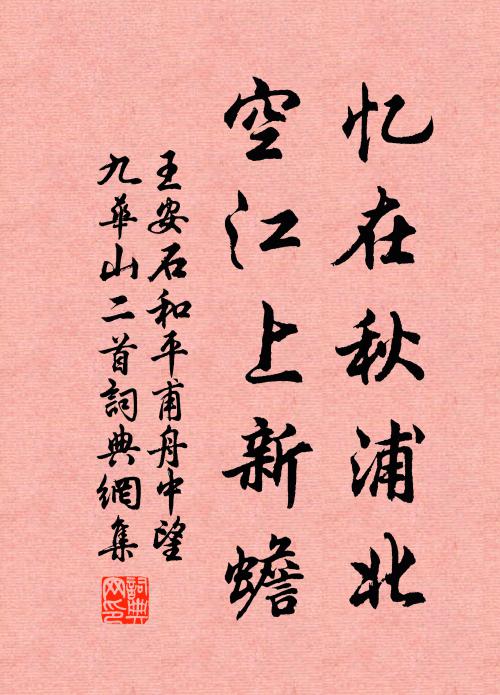 忆在秋浦北
空江上新蟾
王安石和平甫舟中望
九華山二首詞典網集
詞典
网印